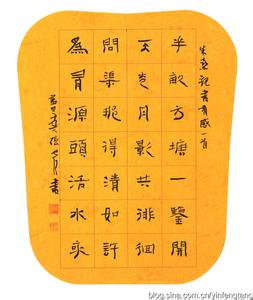 朱熹觀書有感一首
半畝方塘一鑒開
天光云影共徘徊
問渠那得清如許
為有源頭活水來
書
blog.sina.com.cn/yinfengtang